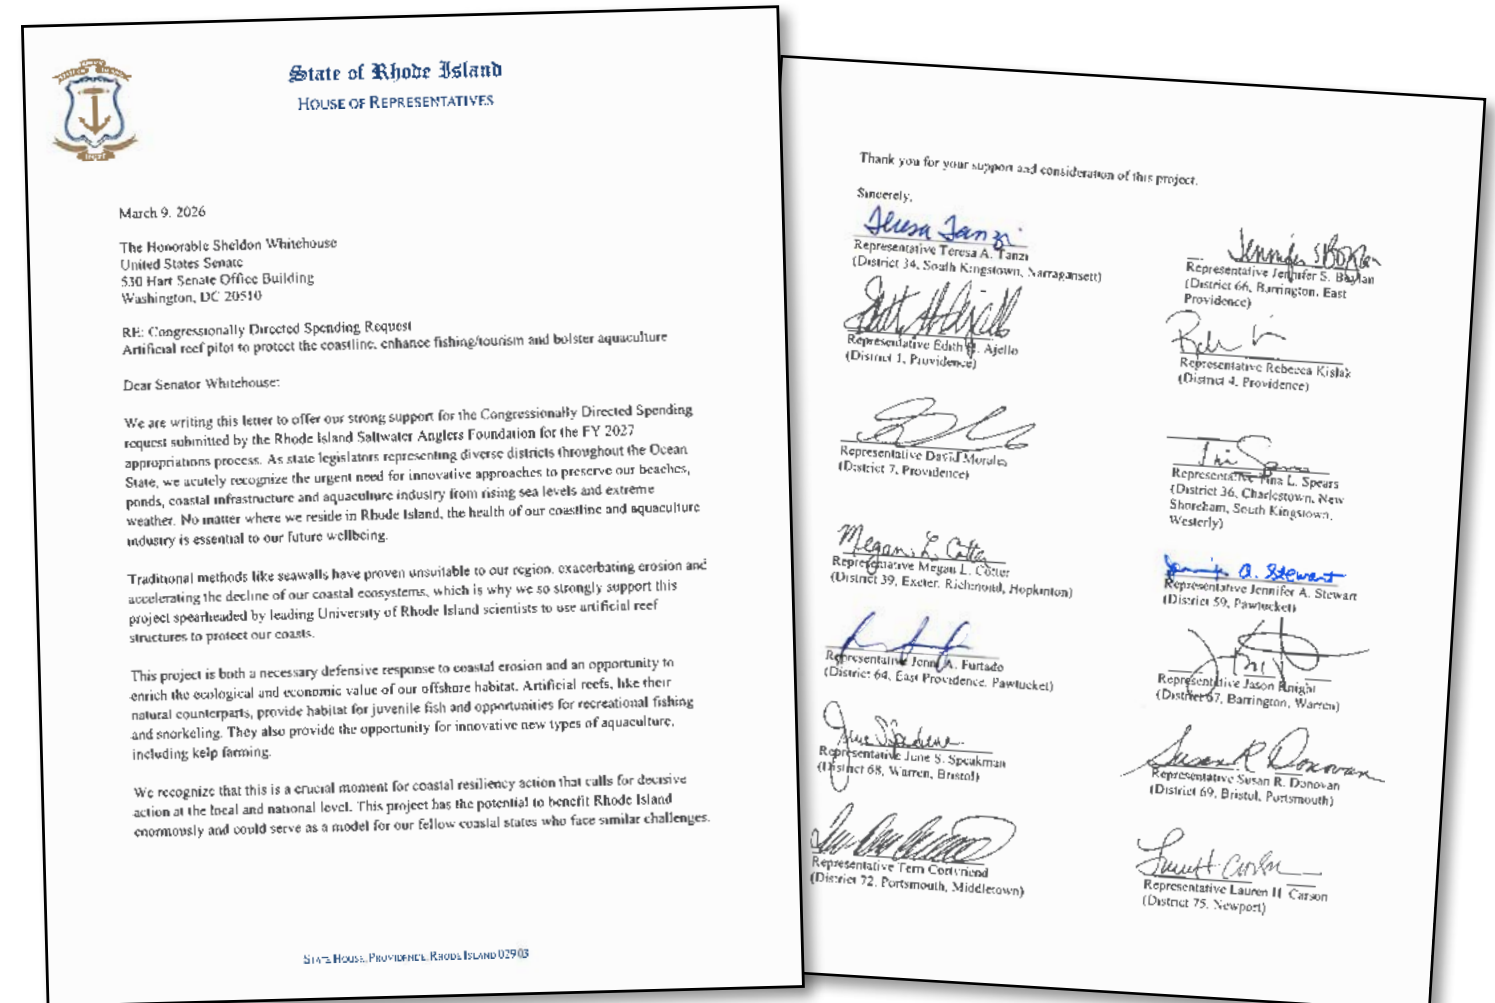 State of Rhode Island
HOUSE OF REPRESENTATIVES
March 9, 2026
The Honorable Sheldon Whitehouse
United States Senate
530 Hart Senate Office Building
Washington, DC 20510
RE: Congressionally Directed Spending Request
Artificial reef pilot to protect the coastline, enhance fishing/tourism and bolster aquaculture
Dear Senator Whitehouse:
We are writing this letter to offer our strong support for the Congressionally Directed Spending
request submitted by the Rhode Island Saltwater Anglers Foundation for the FY 2027
appropriations process. As state legislators representing diverse districts throughout the Ocean
State, we acutely recognize the urgent need for innovative approaches to preserve our beaches,
ponds, coastal infrastructure and aquaculture industry from rising sea levels and extreme
weather. No matter where we reside in Rhode Island, the health of our coastline and aquaculture
industry is essential to our future wellbeing.
Traditional methods like seawalls have proven unsuitable to our region, exacerbating erosion and
accelerating the decline of our coastal ecosystems, which is why we so strongly support this
project spearheaded by leading University of Rhode Island scientists to use artificial reef
structures to protect our coasts.
This project is both a necessary defensive response to coastal erosion and an opportunity to
enrich the ecological and economic value of our offshore habitat. Artificial reefs, like their
natural counterparts, provide habitat for juvenile fish and opportunities for recreational fishing
and snorkeling. They also provide the opportunity for innovative new types of aquaculture,
including kelp farming.
We recognize that this is a crucial moment for coastal resiliency action that calls for decisive
action at the local and national level. This project has the potential to benefit Rhode Island
enormously and could serve as a model for our fellow coastal states who face similar challenges.
STATE HOUSE, PROVIDENCE, RHODE ISLAND 02903
Thank you for your support and consideration of this project.
Sincerely,
Teresa Tanzi
Representative Teresa A. Tanzi
(District 34, South Kingstown, Narragansett)
Representative Jennifer S. Boylan
(District 66, Barrington, East
Providence)
Representative Edith H. Ajello
(District 1, Providence)
Representative Rebecca Kislak
(District 4, Providence)
Representative David Morales
(District 7, Providence)
Tina Spears
Representative Tina L. Spears
(District 36, Charlestown, New
Shoreham, South Kingstown,
Westerly)
Megan L. Cotter
Representative Megan L. Cotter
(District 39, Exeter, Richmond, Hopkinton)
Jennifer A. Stewart
Representative Jennifer A. Stewart
(District 59, Pawtucket)
Representative Jenni A. Furtado
(District 64, East Providence, Pawtucket)
Representative Jason Knight
(District 67, Barrington, Warren)
June Speakman
Representative June S. Speakman
(District 68, Warren, Bristol)
Susan R Donovan
Representative Susan R. Donovan
(District 69, Bristol, Portsmouth)
Representative Terri Cortvriend
(District 72, Portsmouth, Middletown)
Representative Lauren H. Carson
(District 75, Newport)